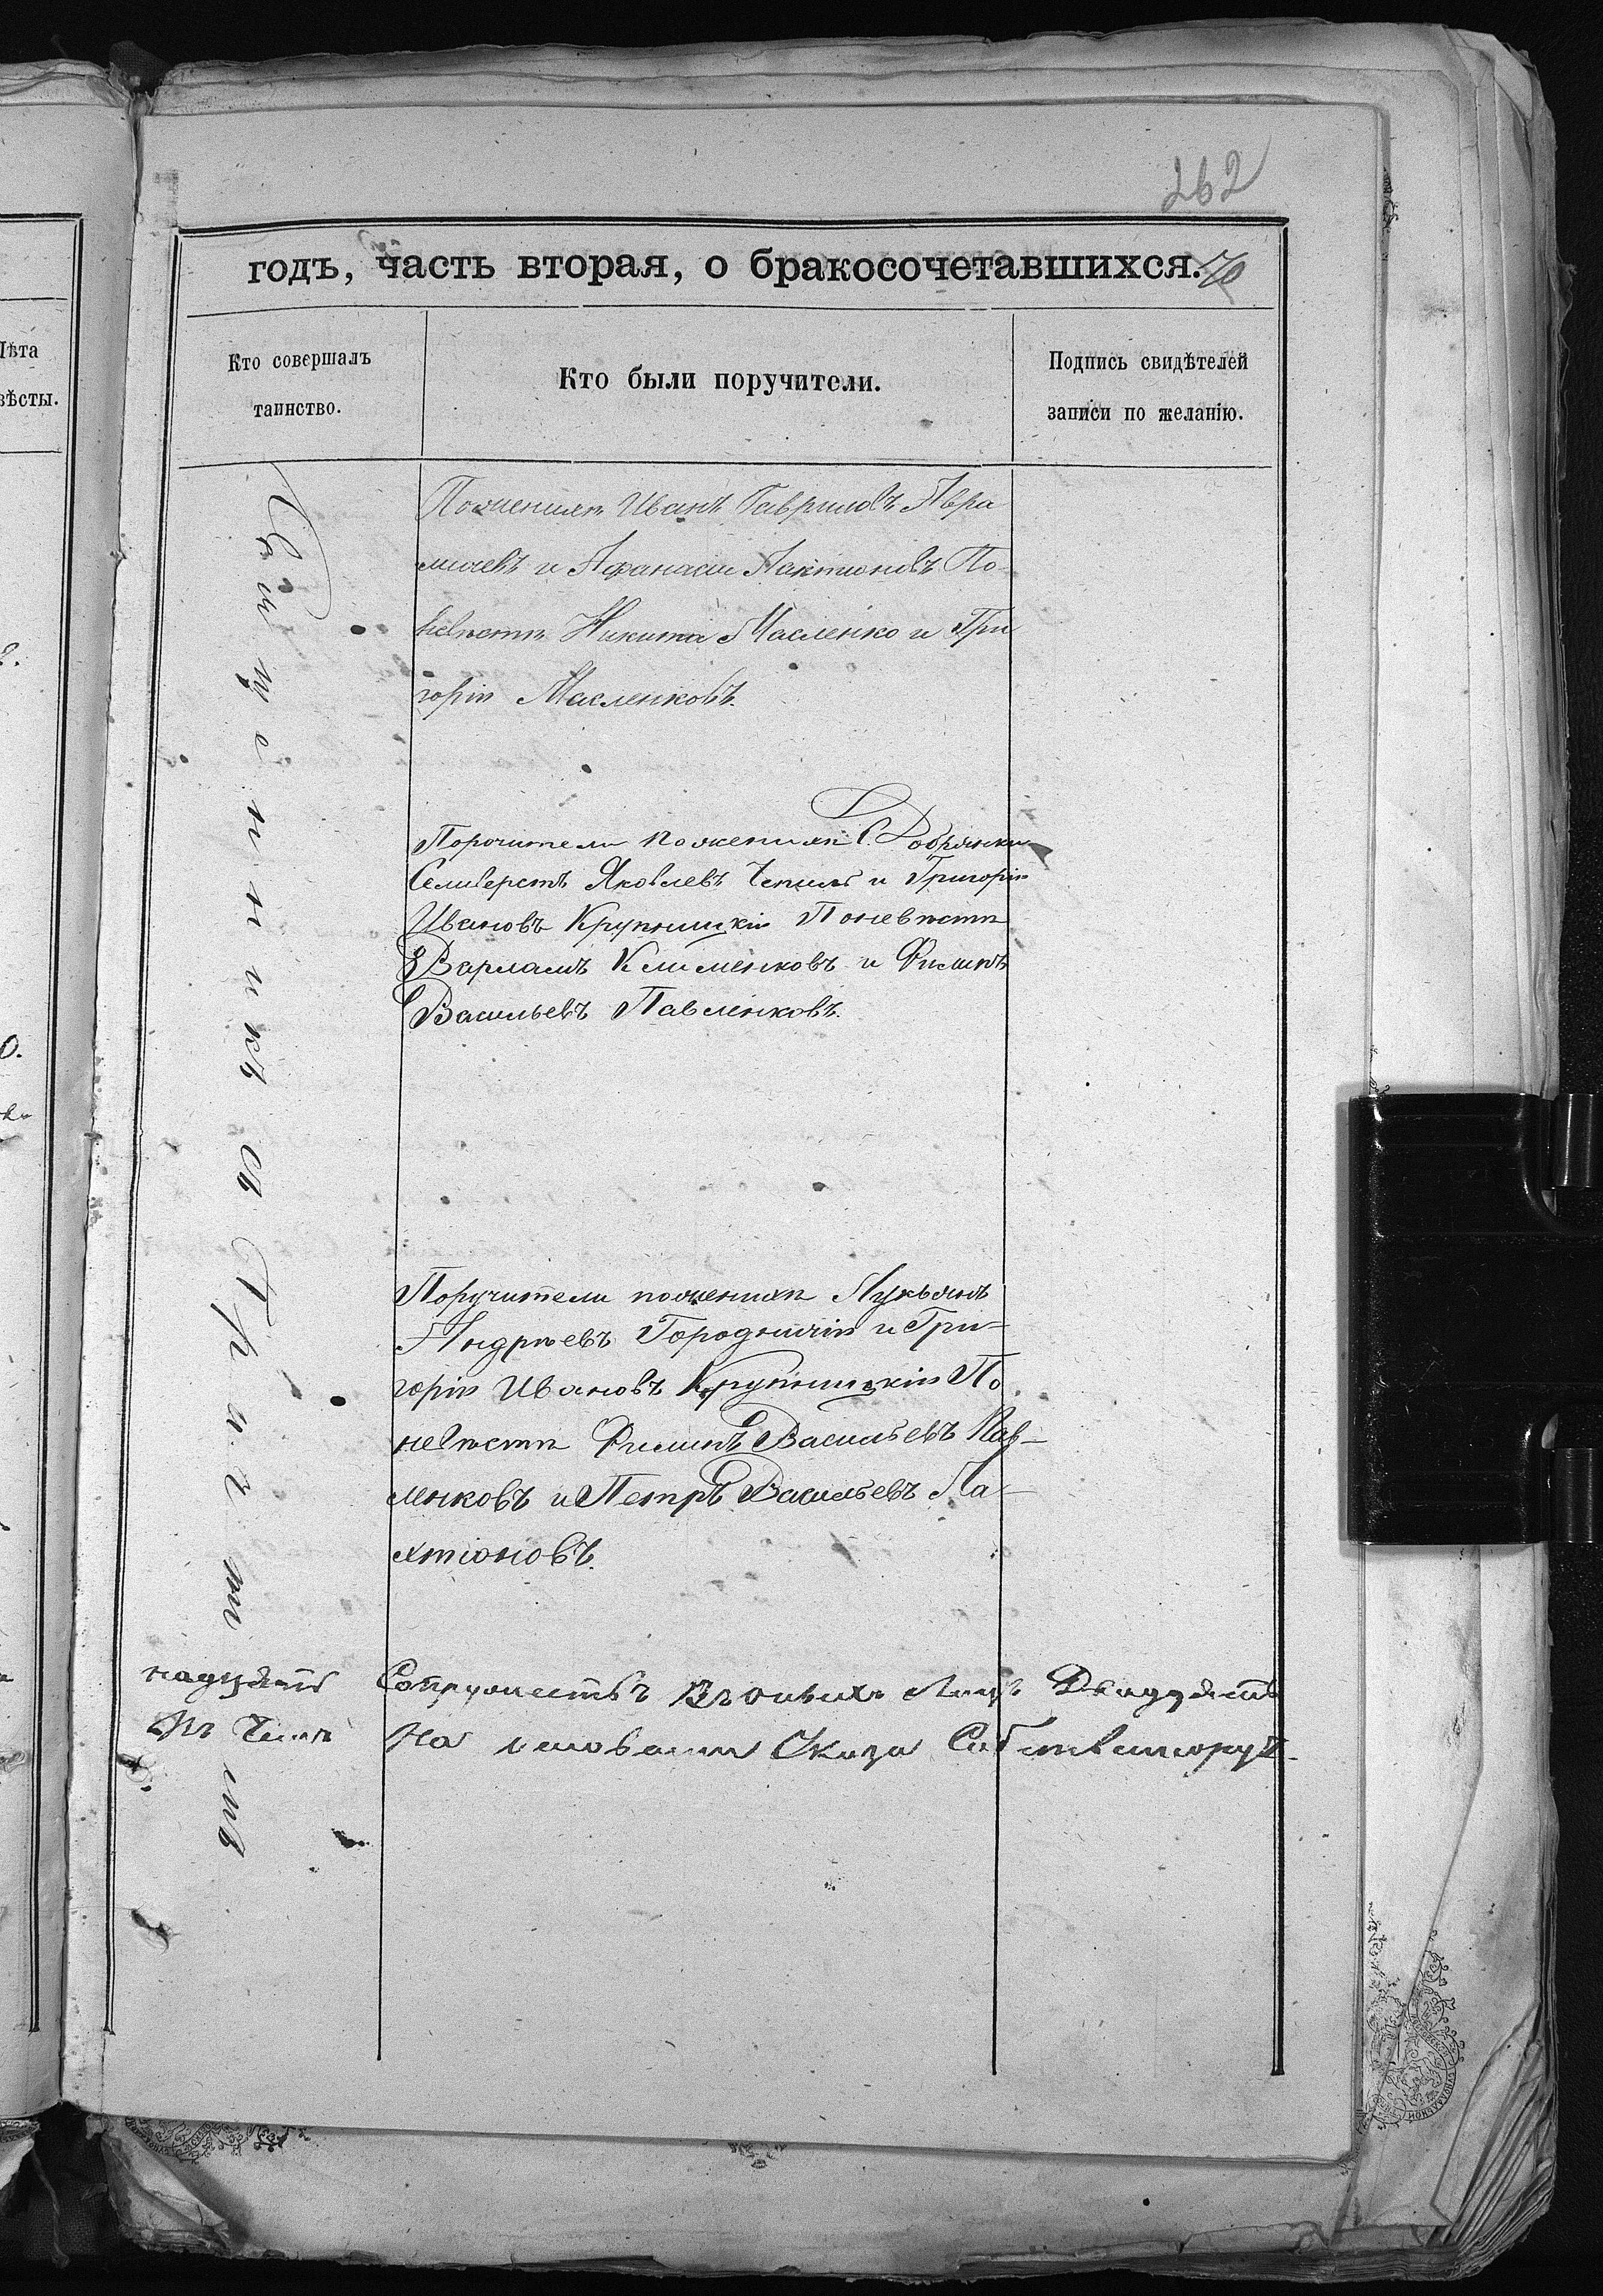 262
годъ, часть вторая, о бракосочетавшихся.
70
Кто совершалъ
таинство.
Кто были поручители.
Подпись свидѣтелей
записи по желанію.
Лѣта
вѣсты.
Священникъ
По женихѣ Иванъ Гавриловъ Авра
и Афанасій Лактионовъ По
невѣстѣ Никита Масленко и Гри
горій Масленковъ.
Порочители по женихѣ С. Добрянки
Селиверстъ Яковлевъ Чепиль и Григорій
Ивановъ Крупницкій По невѣстѣ
Варламъ Клименковъ и Филипъ
Васильевъ Павленковъ.
Поручители по женихѣ Лукьянъ
Андрѣевъ Городничій и Гри-
горій Ивановъ Крупницкій По
невѣстѣ Филипъ Васильевъ Пав-
ленковъ и Петръ Васильевъ Ла-
хтіоновъ.
надцать Супружествъ Двадцать
На основании Указа